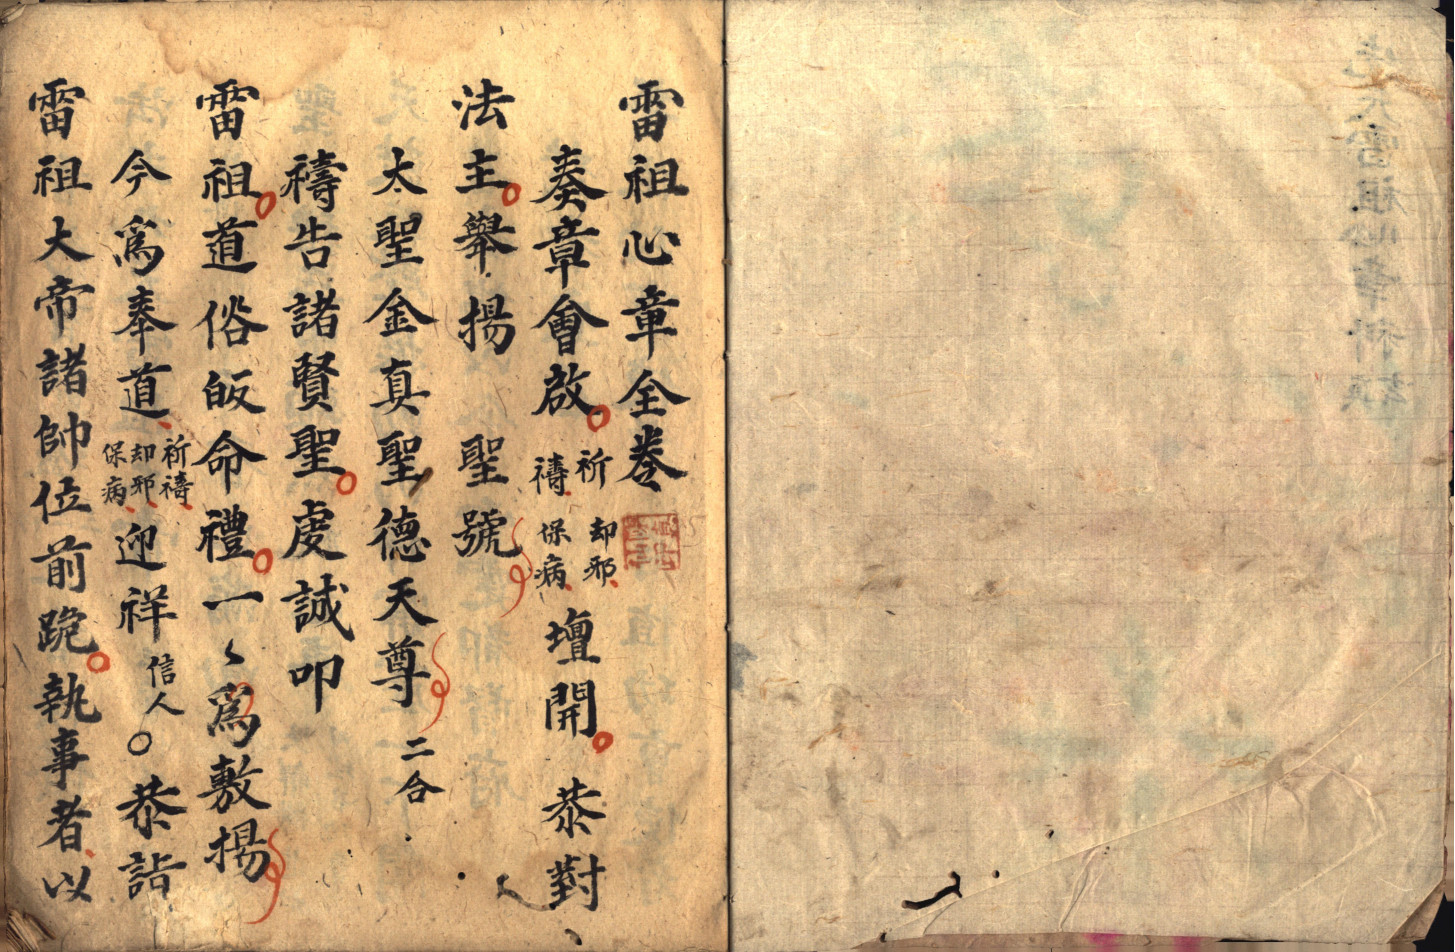 雷祖心章全卷
奏章會啟祈禱却邪保病壇開恭對
法主舉揚聖號
太聖金真聖德天尊二合
禱告諸賢聖虔誠叩
雷祖道俗皈命禮一〻為敷揚
今為奉道祈禱却邪保病迎祥信人〇恭詣
雷祖大帝諸帥位前跪執事者以